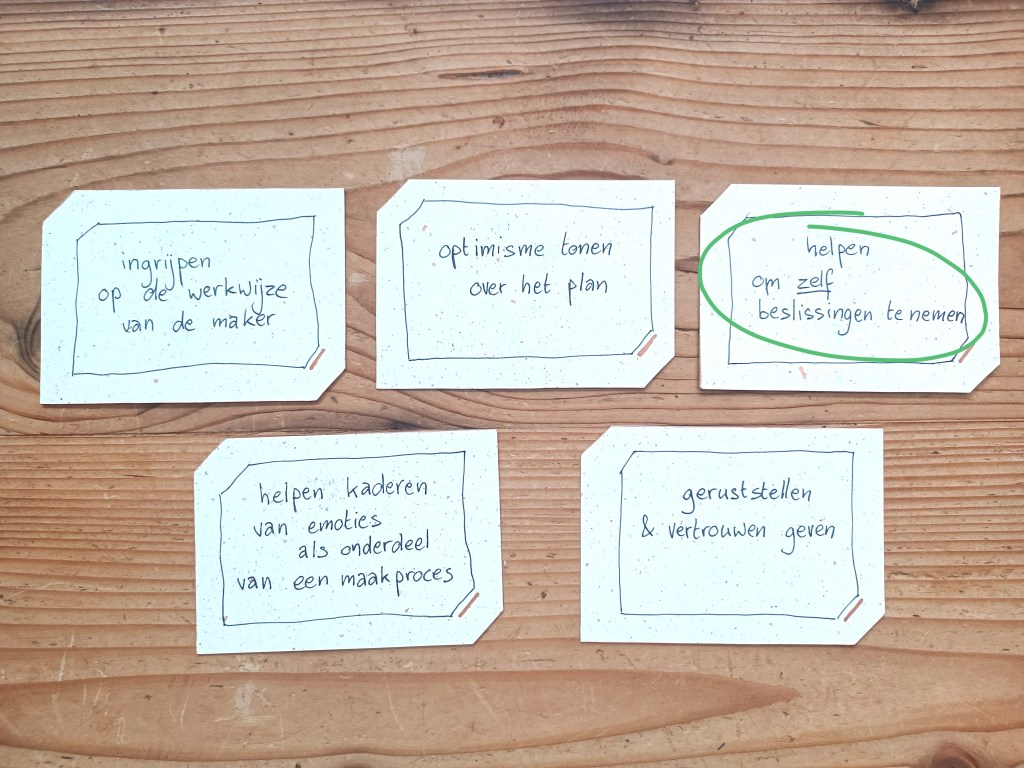 ingrijpen
op de werkwijze
van de maker
optimisme tonen
over het plan
helpen
om zelf
beslissingen te nemen
helpen kaderen
van emoties
als onderdeel
van een maakproces
geruststellen
& vertrouwen geven